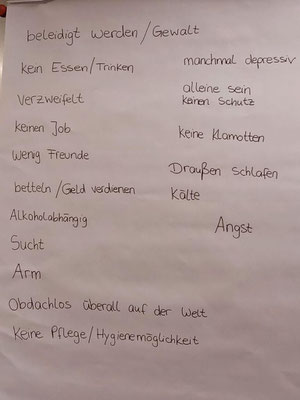 beleidigt werden/Gewalt
kein Essen/Trinken
manchmal depressiv
Verzweifelt
alleine sein
keinen Schutz
keinen Job
keine Klamotten
Wenig Freunde
Draußen schlafen
betteln/Geld verdienen
Kälte
Alkoholabhängig
Angst
Sucht
Arm
Obdachlos überall auf der Welt
Keine Pflege/Hygienemöglichkeit